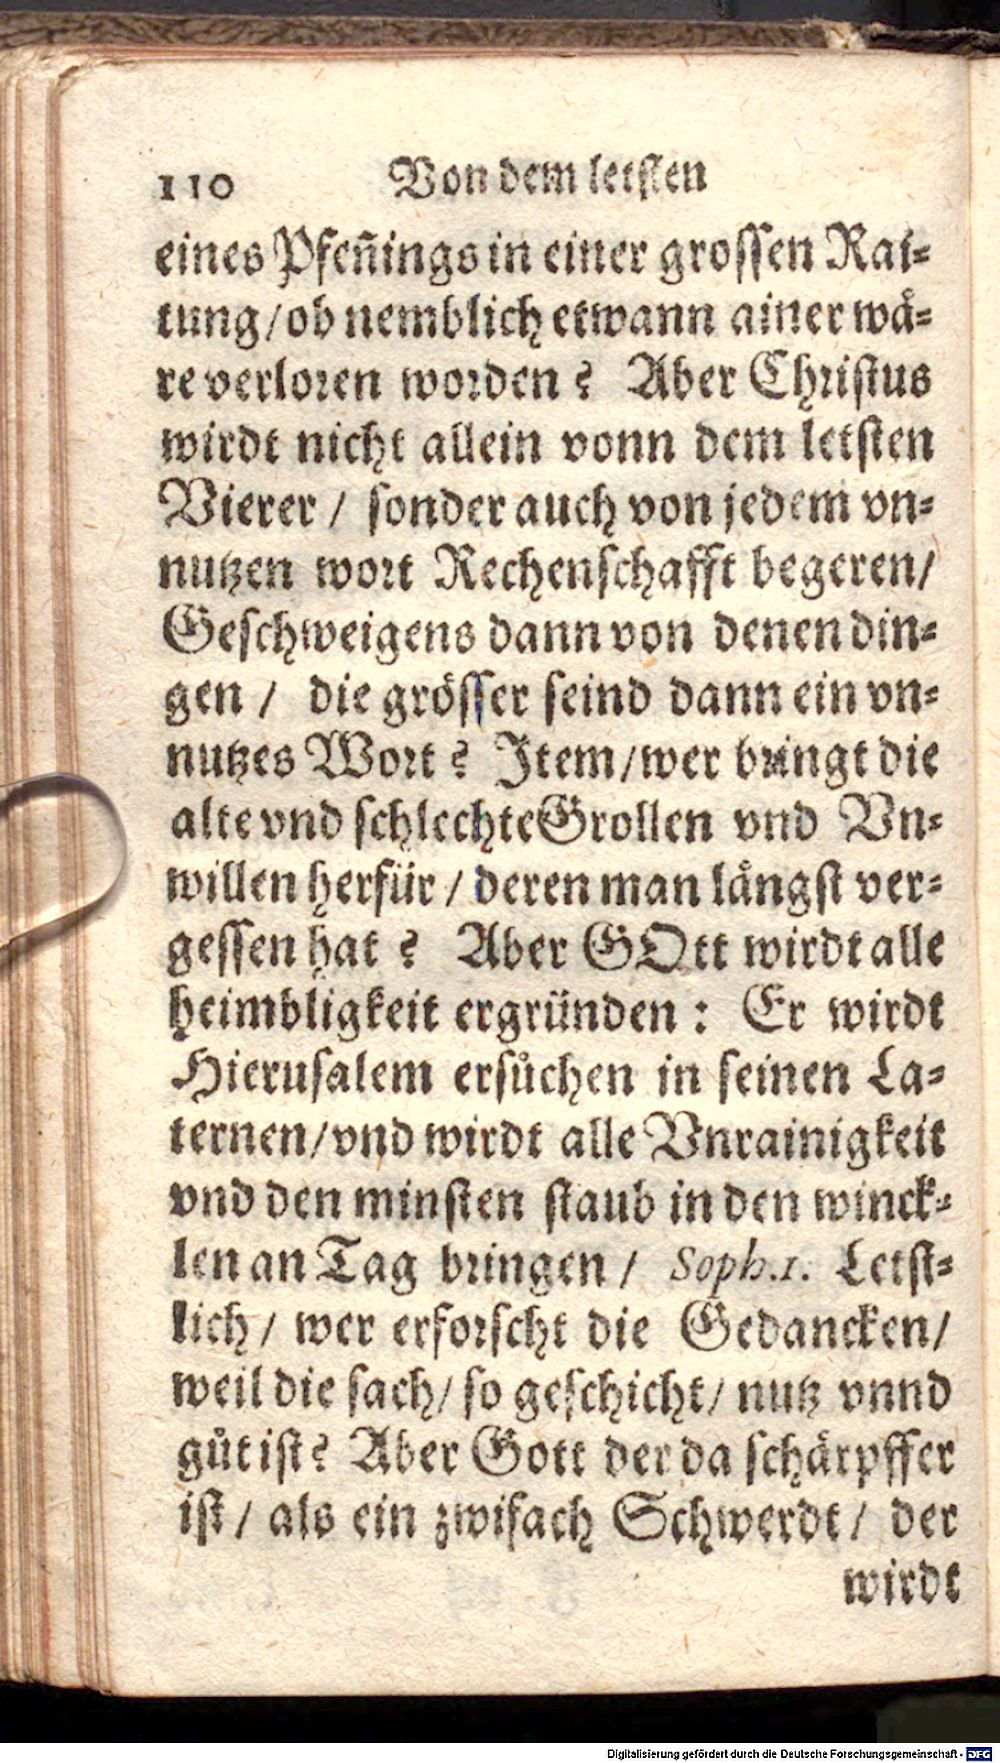 110 Von dem letsten
eines Pfeñings in einer grossen Rai-
tung/ ob nemblich etwann ainer wå-
re verloren worden? Aber Christus
wirdt nicht allein vonn dem letsten
Vierer / sonder auch von jedem vn-
nutzen wort Rechenschafft begeren/
Geschweigens dann von denen din-
gen / die grösser seind dann ein vn-
nutzes Wort? Item/ wer bringt die
alte vnd schlechte Grollen vnd Vn-
willen herfür / deren man långst ver-
gessen hat? Aber GOtt wirdt alle
heimbligkeit ergründen: Er wirdt
Hierusalem ersůchen in seinen La-
ternen/ vnd wirdt alle Vnrainigkeit
vnd den minsten staub in den winck-
len an Tag bringen / Soph.1. Letst-
lich / wer erforscht die Gedancken/
weil die sach/ so geschicht/ nutz vnnd
gůt ist? Aber Gott der da schärpffer
ist / als ein zwifach Schwerdt / der
wirdt
Digitalisierung gefördert durch die Deutsche Forschungsgemeinschaft - DFG